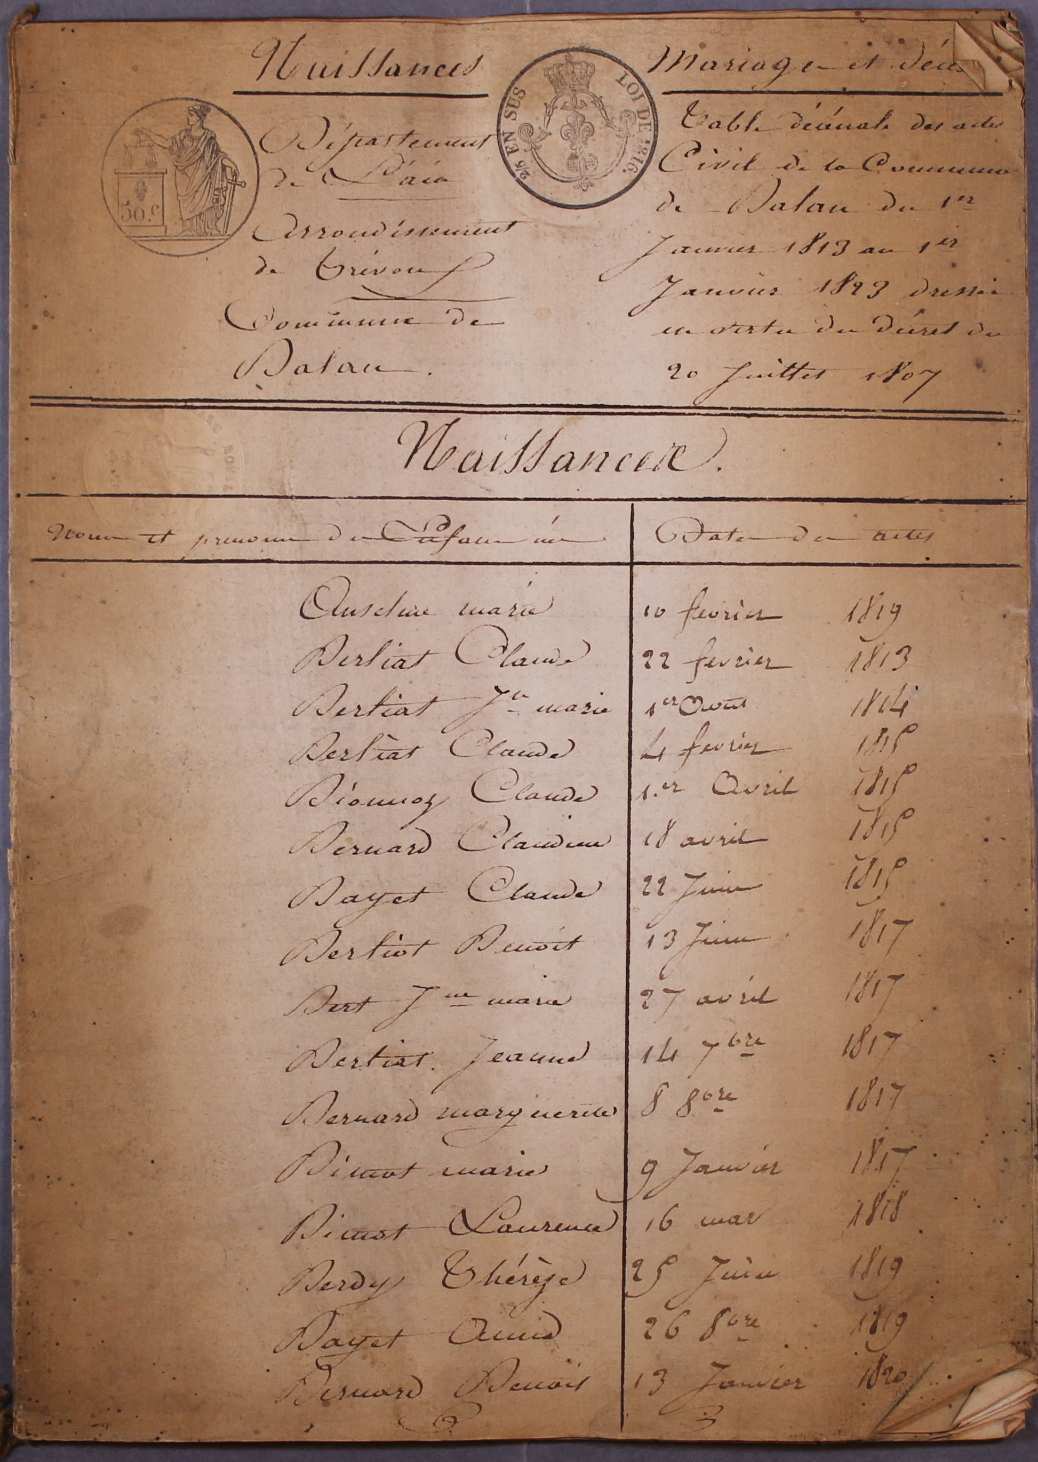 Naissances
Mariage et décès
Département
de L'ain
Arrondissement
de Trévoux
Commune de
Balan.
50 c
25 EN SUS
LOI DE 1816.
Table décénale des actes
Civil de la Commune
de Balan du 1er
Janvier 1813 au 1er
Janvier 1823 dressée
en vertu du décret du
20 Juillet 1807
Naissances.
Noms et prenoms des Enfans nés
Date des actes
Anselme marie 10 fevrier 1819
Berliat Claude 22 fevrier 1813
Berliat Jne marie 1er Aout 1814
Berliat Claude 4 fevrier 1815
Claude 1er Avril 1815
Bernard Claudine 18 avril 1815
Bayet Claude 22 Juin 1815
Berliot Benoit 13 Juin 1817
Bert Jne marie 27 avril 1817
Berliat Jeanne 14 7bre 1817
Bernard marguerite 8 8bre 1817
Bimot marie 9 Janvier 1817
Bimot Laurence 16 mar 1818
Berdy Thérèze 25 Juin 1819
Bayet 26 8bre 1819
Bernard Benoit 13 Janvier 1820